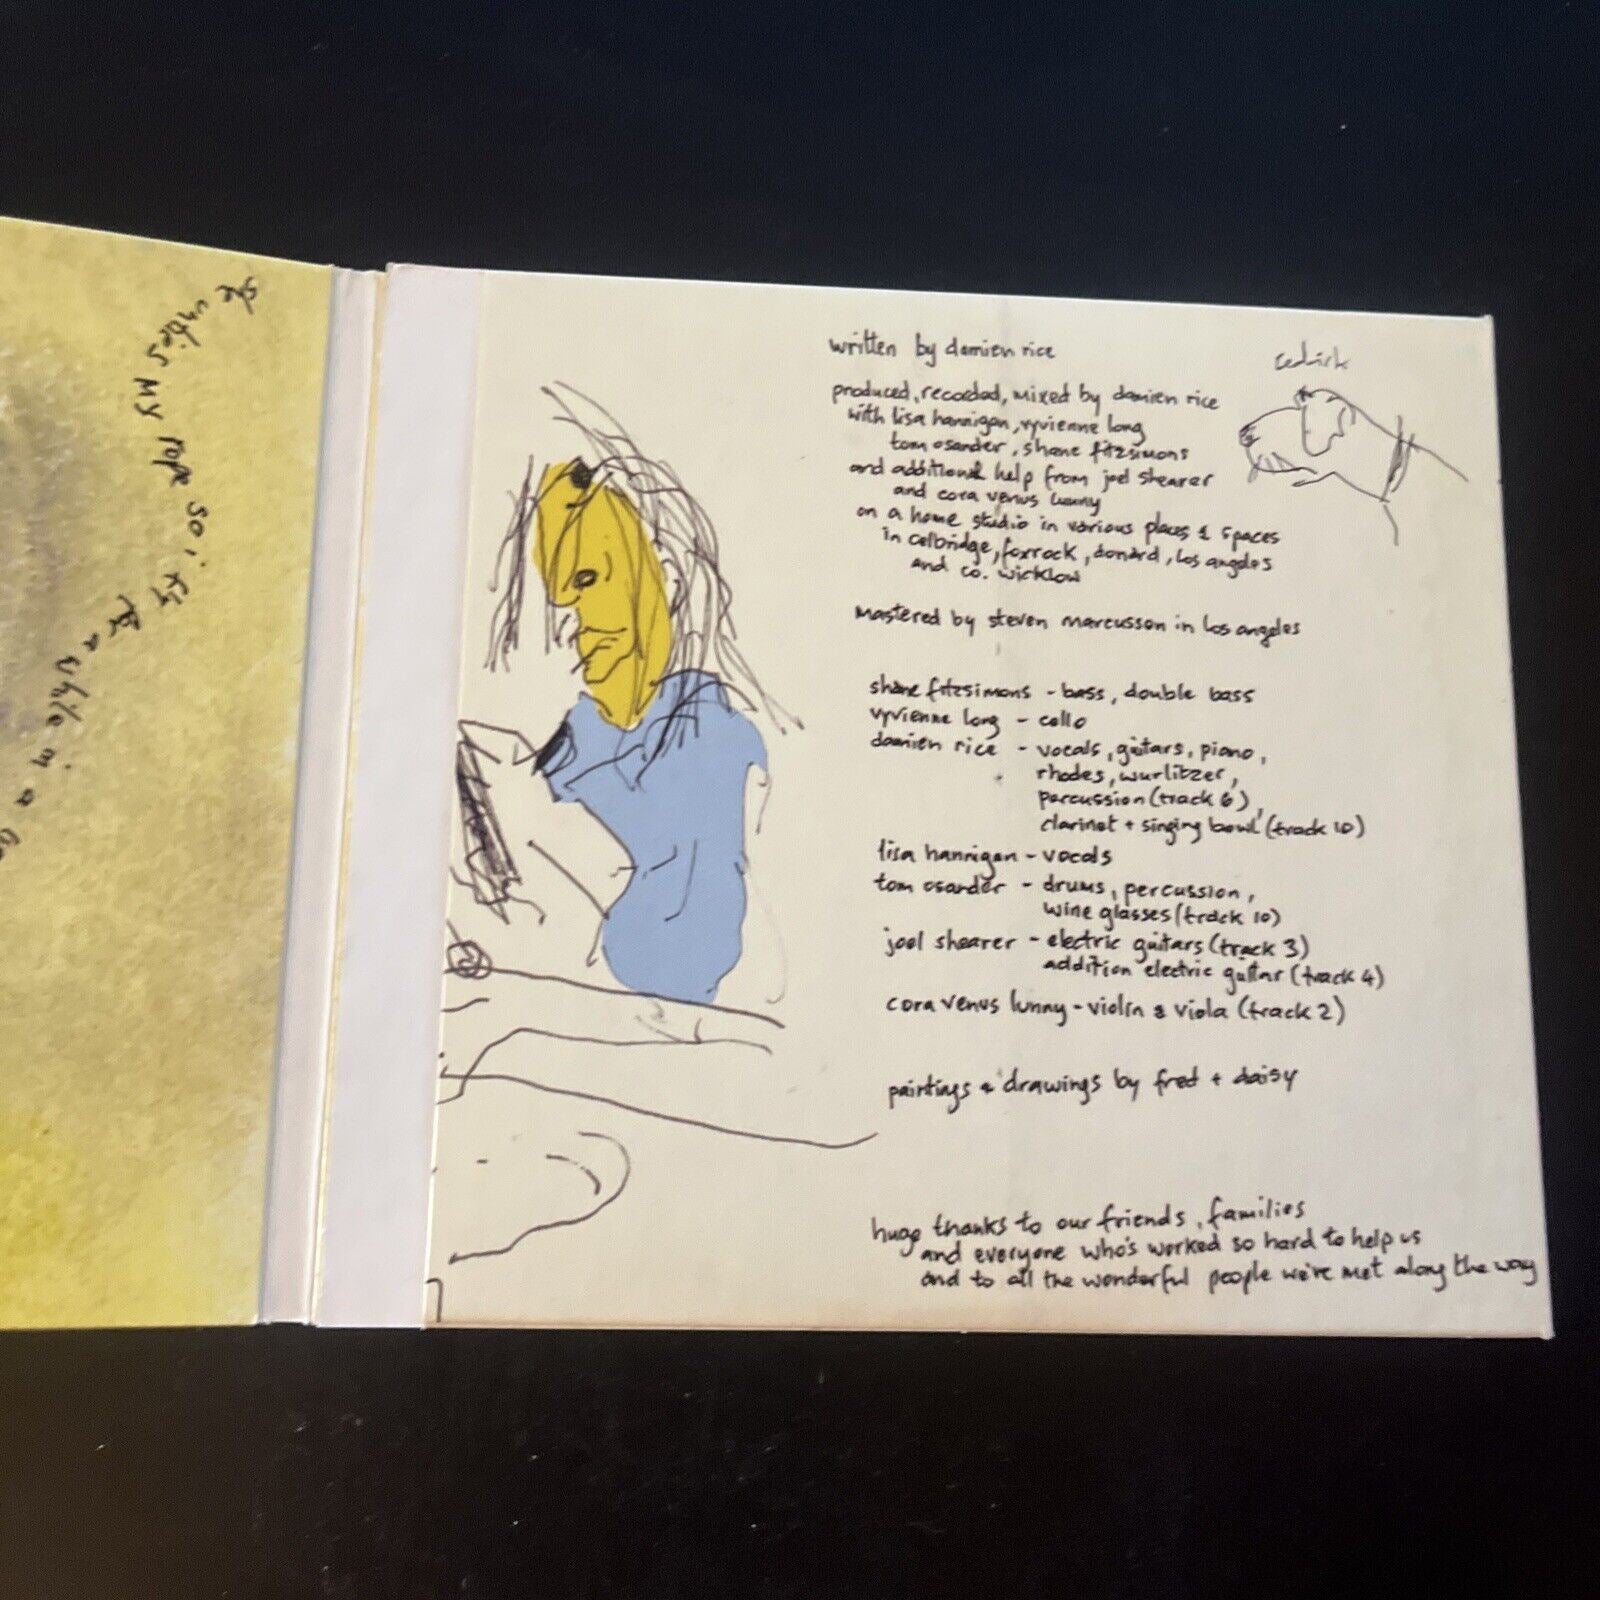 she unties my rope so i fly
for a while in a
written by damien rice
produced, recorded, mixed by damien rice
with lisa hannigan, vyvienne long
tom osander, shane fitzsimons
and additional help from joel shearer
and cora venus lunny
on a home studio in various places & spaces
in celbridge, foxrock, donard, los angeles
and co. wicklow
mastered by steven marcussen in los angeles
shane fitzsimons - bass, double bass
vyvienne long - cello
damien rice - vocals, guitars, piano,
rhodes, wurlitzer,
percussion (track 6),
clarinet + singing bowl (track 10)
lisa hannigan - vocals
tom osander - drums, percussion,
wine glasses (track 10)
joel shearer - electric guitars (track 3)
addition electric guitar (track 4)
cora venus lunny - violin & viola (track 2)
paintings & drawings by fred + daisy
huge thanks to our friends, families
and everyone who's worked so hard to help us
and to all the wonderful people we're met along the way